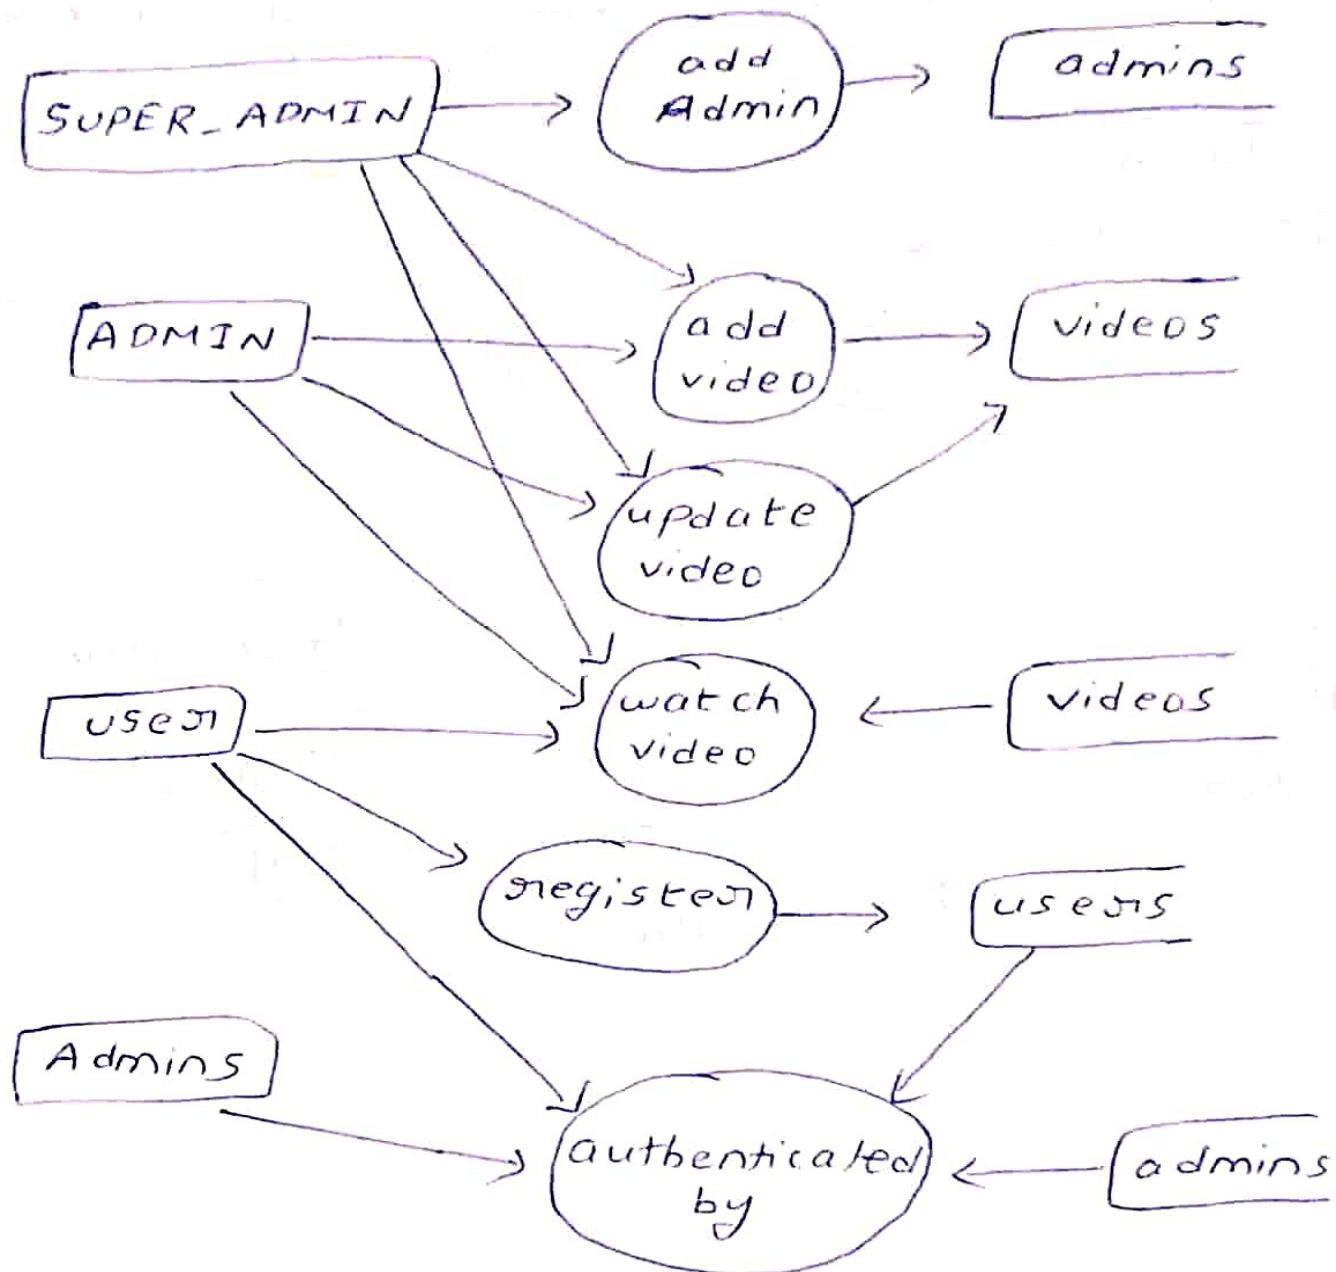 SUPER_ADMIN
add
Admin
admins
ADMIN
add
video
videos
update
video
user
watch
video
videos
register
users
Admins
authenticated
by
admins